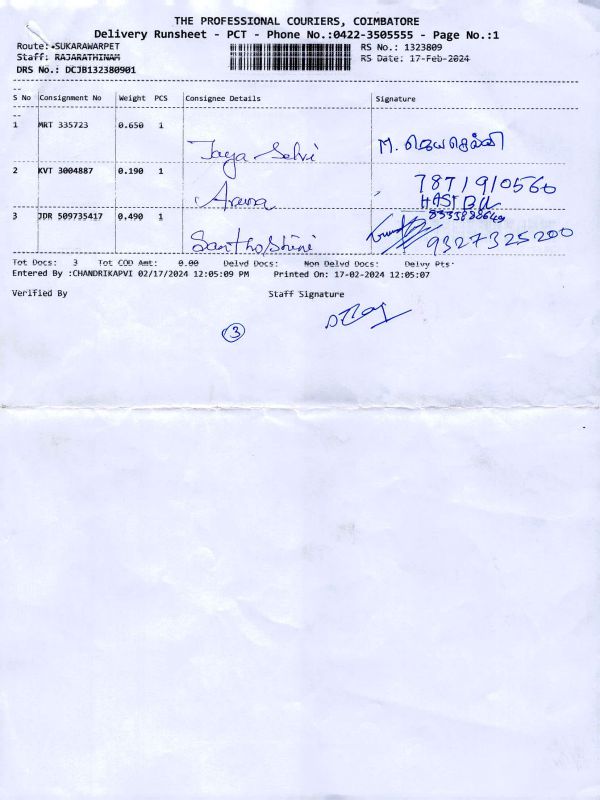 THE PROFESSIONAL COURIERS, COIMBATORE
Delivery Runsheet - PCT - Phone No.:0422-3505555 - Page No.:1
Route:-SUKARAWARPET RS No.: 1323809
Staff: RAJARATHINAM RS Date: 17-Feb-2024
DRS No.: DCJB132380901
S No Consignment No Weight PCS Consignee Details Signature
1 MRT 335723 0.650 1 Jaya Selvi M. ஜெயசெல்வி
2 KVT 3004887 0.190 1 Aruna 7871910560
3 JDR 509735417 0.490 1 Santhoshini 9327325200
Tot Docs: 3 Tot COD Amt: 0.00 Delvd Docs: Non Delvd Docs: Delvy Pts:
Entered By :CHANDRIKAPVI 02/17/2024 12:05:09 PM Printed On: 17-02-2024 12:05:07
Verified By Staff Signature
3